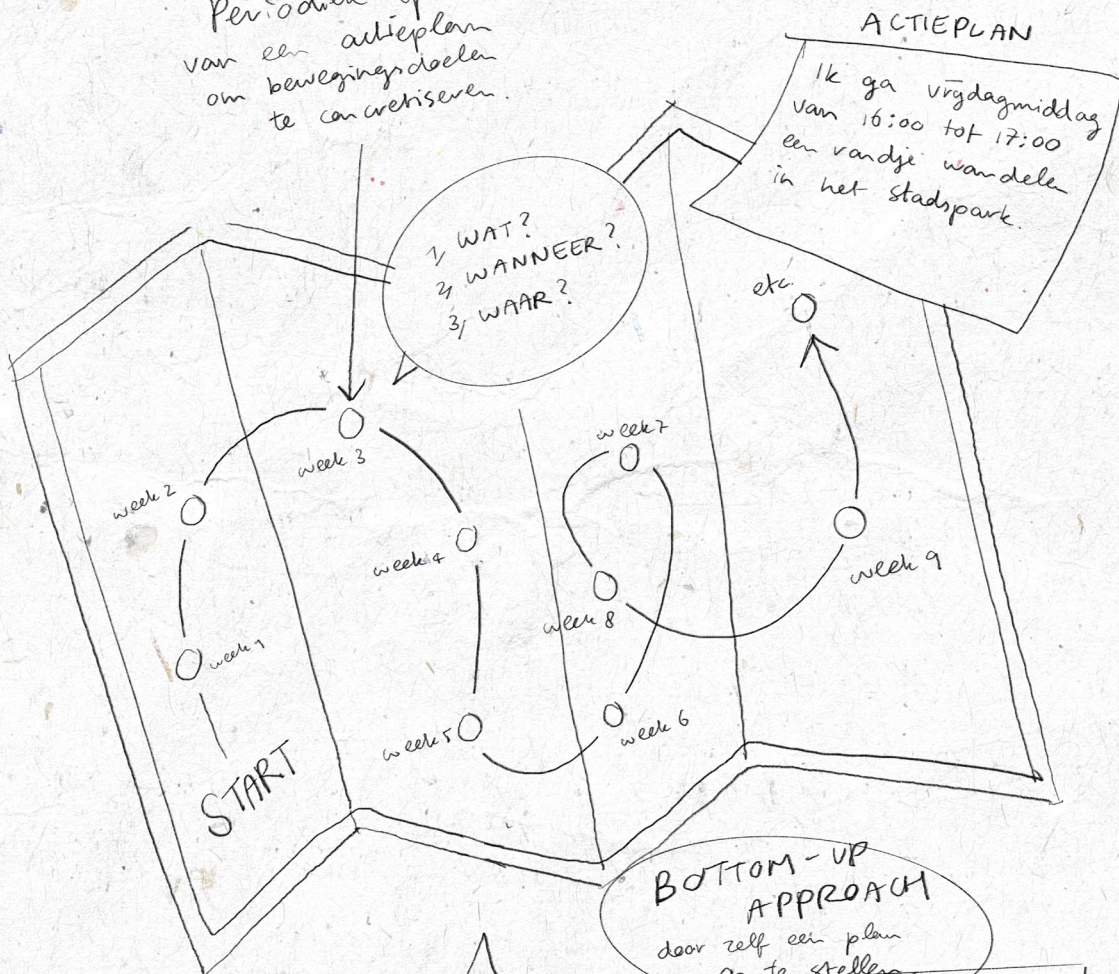 van een actieplan
om bewegingsdoelen
te concretiseren.
ACTIEPLAN
Ik ga vrijdagmiddag
van 16:00 tot 17:00
een randje wandelen
in het stadspark.
1, WAT?
2, WANNEER?
3, WAAR?
etc.
week 7
week 3
week 2
week 4
week 9
week 8
week 1
week 5
week 6
START
BOTTOM-UP
APPROACH
door zelf een plan
te stellen